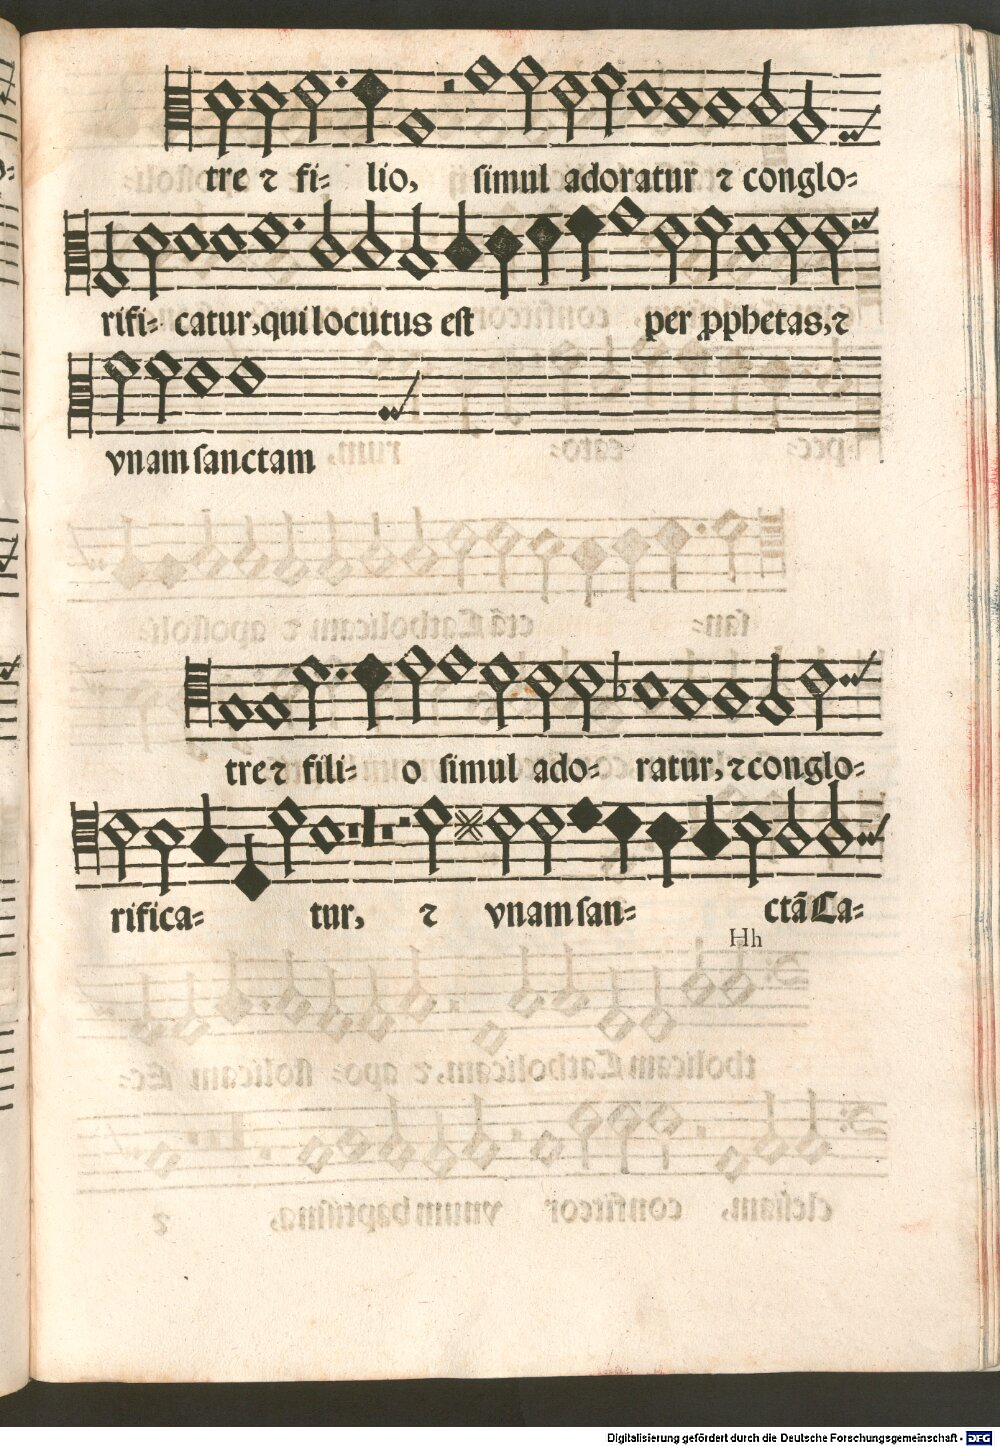 tre ⁊ fi- lio, simul adoratur ⁊ conglo-
rifi- catur, qui locutus est per ꝓphetas, ⁊
vnam sanctam
tre ⁊ fili- o simul ado- ratur, ⁊ conglo-
rifica- tur, ⁊ vnam san- ctã Ca-
Hh
Digitalisierung gefördert durch die Deutsche Forschungsgemeinschaft - DFG